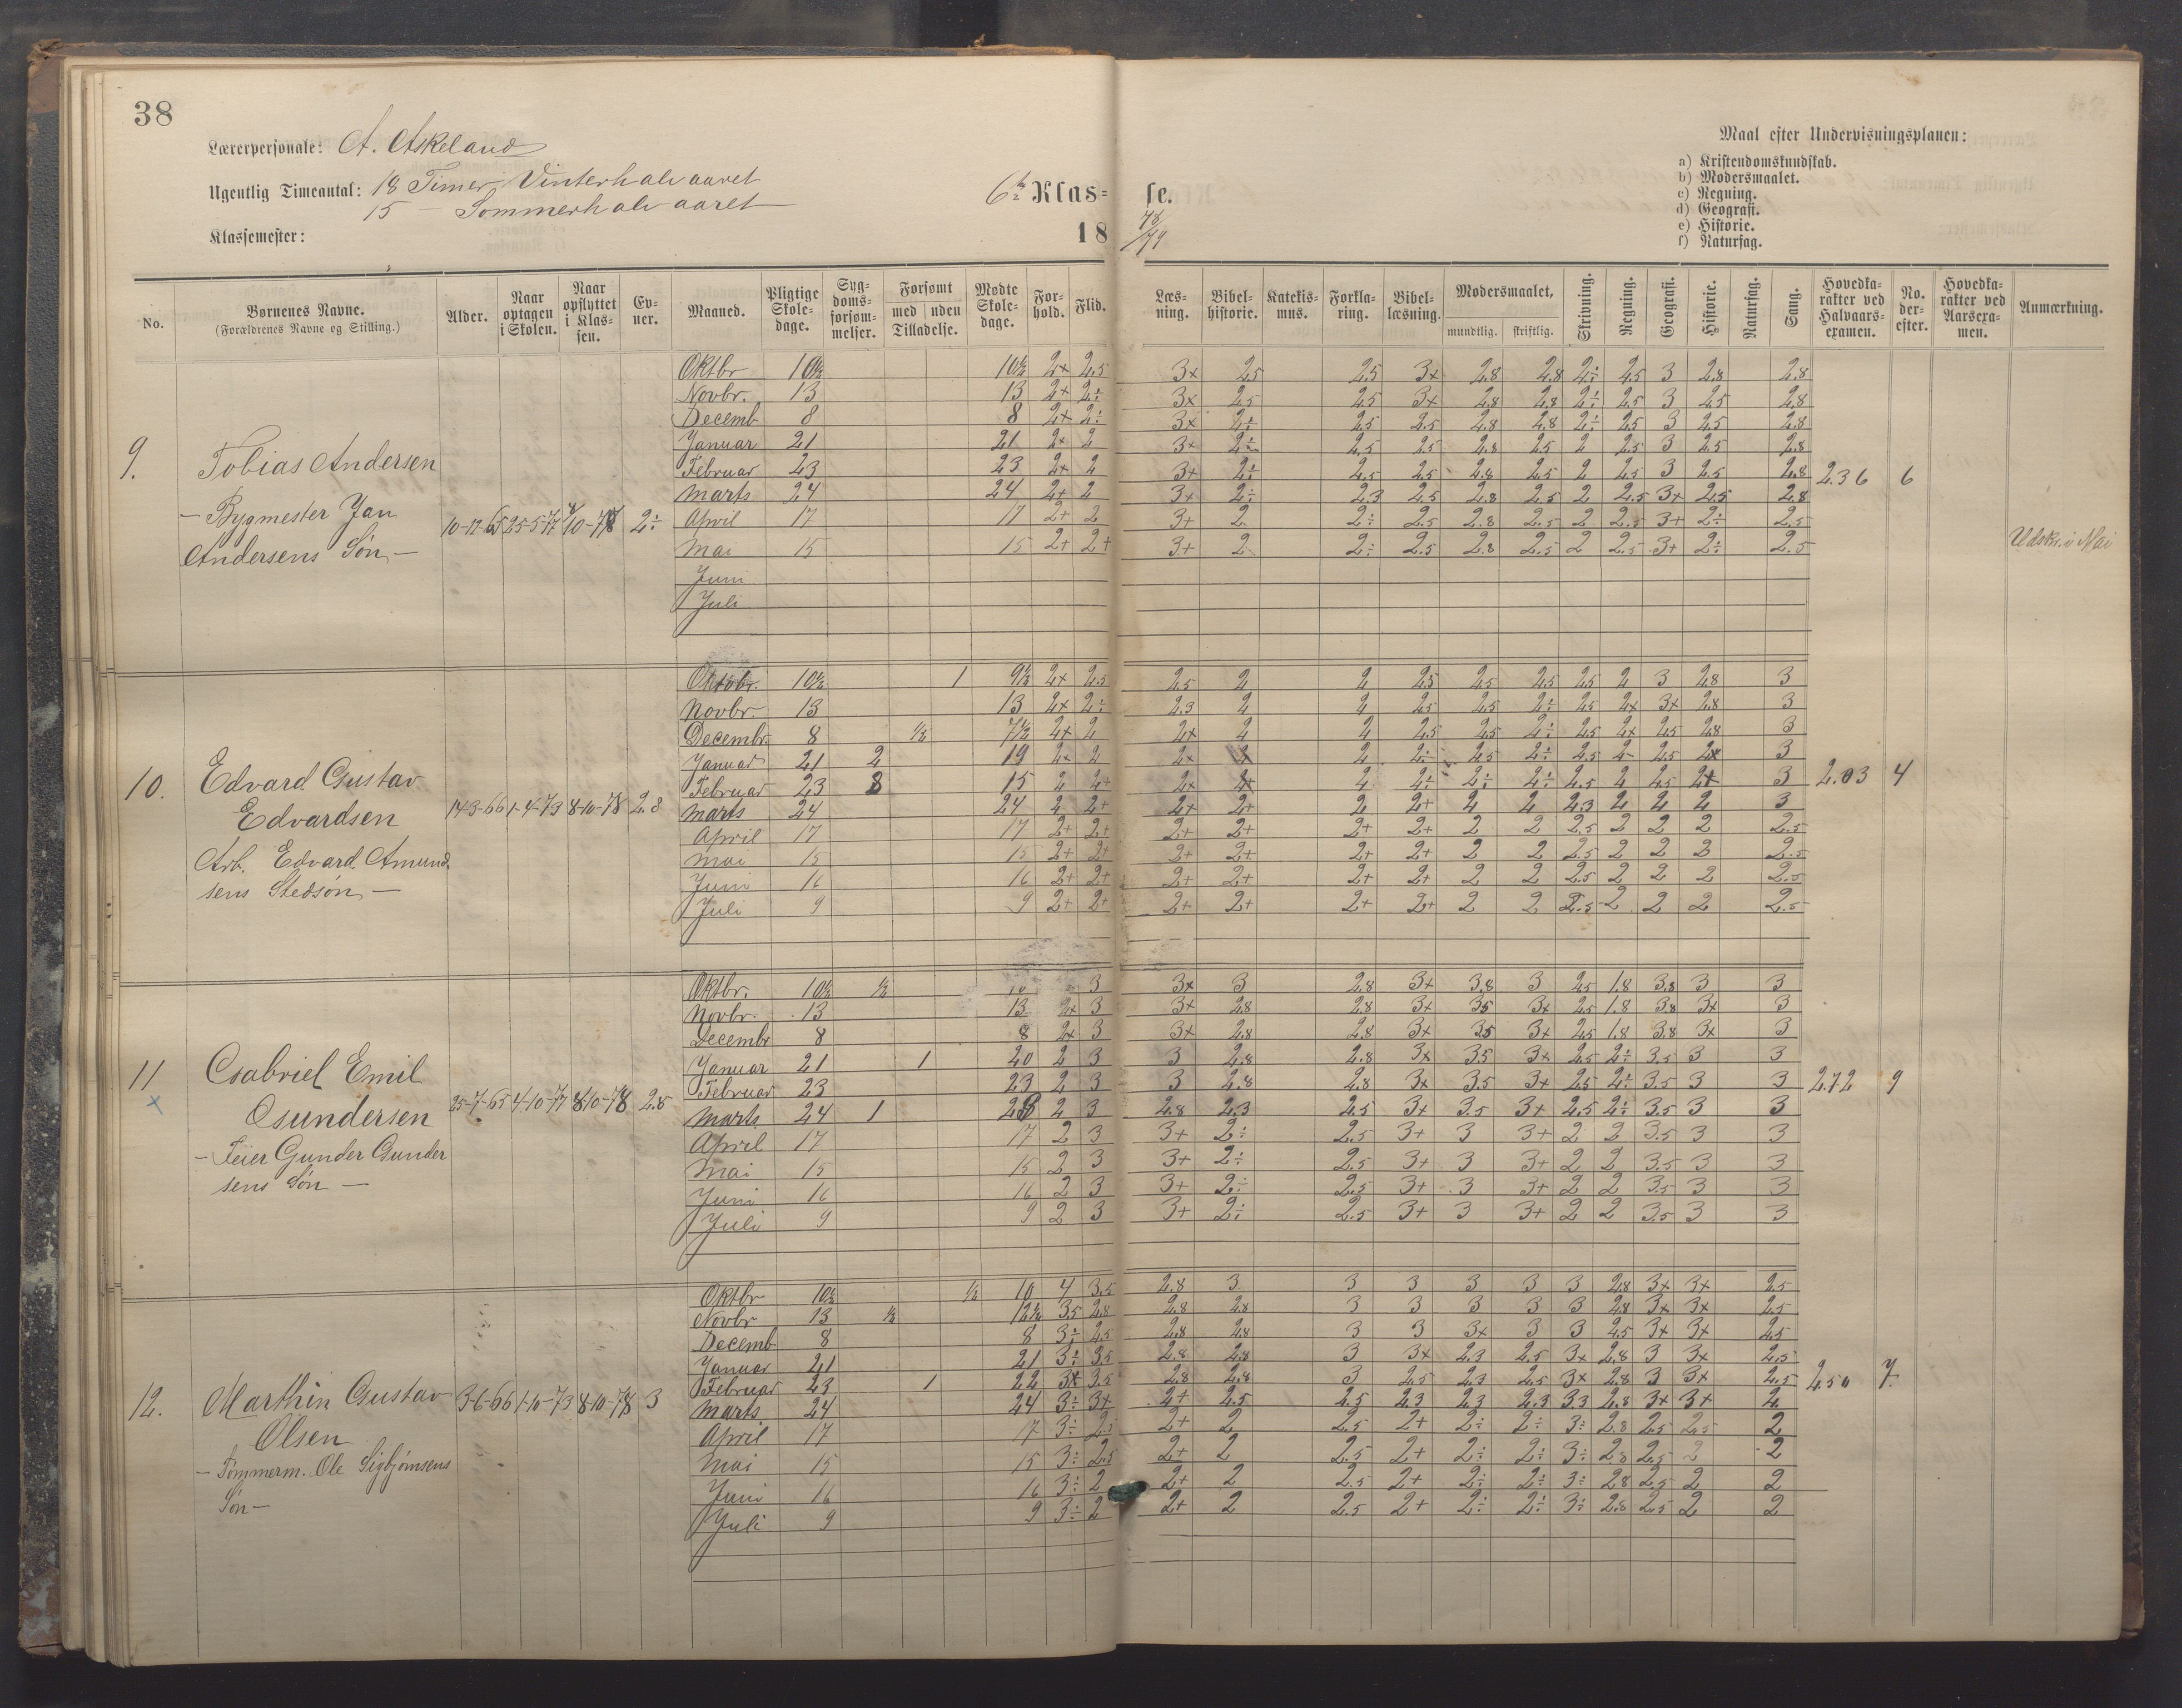 38
Lærerpersonale: A. Askeland
Ugentlig Timeantal: 18 Timer Vinterhalvaaret
15 — Sommerhalvaaret
Klassemester:
6te Klas= se.
18 78/79
Maal efter Undervisningsplanen:
a) Kristendomskundskab.
b) Modersmaalet.
c) Regning.
d) Geografi.
e) Historie.
f) Naturfag.
No. Børnenes Navne. (Forældrenes Navne og Stilling.) Alder. Naar optagen i Skolen. Naar opflyttet i Klassen. Evner. Maaned. Pligtige Skoledage. Sygdomsforsømmelser. Forsømt med uden Tilladelse. Mødte Skoledage. Forhold. Flid. Læsning. Bibelhistorie. Katekismus. Forklaring. Bibellæsning. Modersmaalet, mundtlig. skriftlig. Skrivning. Regning. Geografi. Historie. Naturfag. Sang. Hovedkarakter ved Halvaarsexamen. No. derefter. Hovedkarakter ved Aarsexamen. Anmærkning.
9. Tobias Andersen
— Bygmester Jan
Andersens Søn —
10-12-65 25-5-77 8/10-78 2÷
Oktbr 10½ 10½ 2+ 2.5 3+ 2.5 2.5 3+ 2.8 2.8 2÷ 2.5 3 2.8 2.8
Novbr. 13 13 2+ 2÷ 3+ 2.5 2.5 3+ 2.8 2.8 2÷ 2.5 3 2.5 2.8
Decemb 8 8 2+ 2÷ 3+ 2÷ 2.5 2.5 2.8 2.8 2÷ 2.5 3 2.5 2.8
Januar 21 21 2+ 2 3+ 2÷ 2.5 2.5 2.8 2.5 2 2.5 3 2.5 2.8
Februar 23 23 2+ 2 3+ 2÷ 2.5 2.5 2.8 2.5 2 2.5 3 2.5 2.8
Marts 24 24 2+ 2 3+ 2÷ 2.3 2.5 2.8 2.5 2 2.5 3+ 2.5 2.8
April 17 17 2+ 2 3+ 2 2÷ 2.5 2.8 2.5 2 2.5 3+ 2÷ 2.5
Mai 15 15 2+ 2+ 3+ 2 2÷ 2.5 2.8 2.5 2 2.5 3+ 2÷ 2.5
Juni
Juli
2.36 6
Udskr. i Mai
10. Edvard Gustav
Edvardsen
Arb. Edvard Amund
sens Stedsøn —
14-3-66 1-4-73 8-10-78 2.8
Oktobr. 10½ 1 9½ 2+ 2.5 2.5 2 2 2.5 2.5 2.5 2.5 2 3 2.8 3
Novbr. 13 13 2+ 2÷ 2.3 2 2 2.5 2.5 2÷ 2.5 2+ 3+ 2.8 3
Decembr. 8 ½ 7½ 2+ 2 2+ 2 2 2.5 2.5 2÷ 2.5 2+ 2.5 2.8 3
Januar 21 2 19 2+ 2 2+ 2 2÷ 2.5 2÷ 2.5 2- 2.5 3
Februar 23 8 15 2 2+ 2+ 2+ 2 2÷ 2÷ 2÷ 2.5 2 2.5 2+ 3
Marts 24 24 2 2+ 2+ 2+ 2 2+ 2 2 2.3 2 2 2 3
April 17 17 2+ 2+ 2+ 2+ 2+ 2+ 2 2 2.5 2 2 2 2.5
Mai 15 15 2+ 2+ 2+ 2+ 2+ 2+ 2 2 2.5 2 2 2 2.5
Juni 16 16 2+ 2+ 2+ 2+ 2+ 2+ 2 2 2.5 2 2 2 2.5
Juli 9 9 2+ 2+ 2+ 2+ 2+ 2+ 2 2 2.5 2 2 2 2.5
2.03 4
11 Gabriel Emil
Gundersen
— Feier Gunder Gunder
sens Søn —
25-7-65 4-10-77 8-10-78 2.5
Oktbr. 10½ ½ 10 3 3+ 3 2.8 3+ 3.8 3 2.5 1.8 3.8 3 3
Novbr. 13 13 2+ 3 3+ 2.8 2.8 3+ 3.5 3+ 2.5 1.8 3.8 3+ 3
Decembr 8 8 2+ 3 3+ 2.8 2.8 3+ 3.5 3+ 2.5 1.8 3.8 3+ 3
Januar 21 1 20 2 3 3 2.8 2.8 3+ 3.5 3+ 2.5 2÷ 3.5 3 3
Februar 23 23 2 3 3 2.8 2.8 3+ 3.5 3+ 2.5 2÷ 3.5 3 3
Marts 24 1 23 2 3 2.8 2.3 2.5 3+ 3.5 3+ 2.5 2÷ 3.5 3 3
April 17 17 2 3 3+ 2÷ 2.5 3+ 3 3+ 2 2 3.5 3 3
Mai 15 15 2 3 3+ 2÷ 2.5 3+ 3 3+ 2 2 3.5 3 3
Juni 16 16 2 3 3+ 2÷ 2.5 3+ 3 3+ 2 2 3.5 3 3
Juli 9 9 2 3 3+ 2÷ 2.5 3+ 3 3+ 2 2 3.5 3 3
2.72 9
12. Marthin Gustav
Olsen
— Tømmerm. Ole Sigbjørnsens
Søn —
3-6-66 1-10-73 8-10-78 3
Oktbr 10½ ½ 10 4 3.5 2.8 3 3 3 3 3 3 2.8 3+ 3+ 2.5
Novbr 13 ½ 12½ 3.5 2.8 2.8 2.8 3 3 3 3 3 2.8 3+ 3+ 2.5
Decemb 8 8 3÷ 2.5 2.8 2.8 3 3 3+ 3 3 2.5 3+ 3+ 2.5
Januar 21 21 3÷ 3.5 2.8 2.8 3 3+ 2.3 2.5 3+ 2.8 3 3+ 2.5
Februar 23 1 22 3+ 3.5 2.8 2.8 3 2.5 2.3 2.5 3+ 2.8 3 3+ 2.5
Marts 24 24 3÷ 3+ 2+ 2.5 2.5 2.3 2.3 2.3 3.3 2.8 3+ 3+ 2
April 17 17 3÷ 2.5 2+ 2 2.5 2+ 2÷ 2÷ 3÷ 2.8 2.5 2.5 2
Mai 15 15 3÷ 2.5 2+ 2 2.5 2+ 2÷ 2÷ 3÷ 2.8 2.5 2 2
Juni 16 16 3÷ 2 2+ 2 2.5 2+ 2÷ 2÷ 3÷ 2.8 2.5 2 2
Juli 9 9 3÷ 2 2+ 2 2.5 2+ 2÷ 2÷ 3÷ 2.8 2.5 2 2
2.50 7.